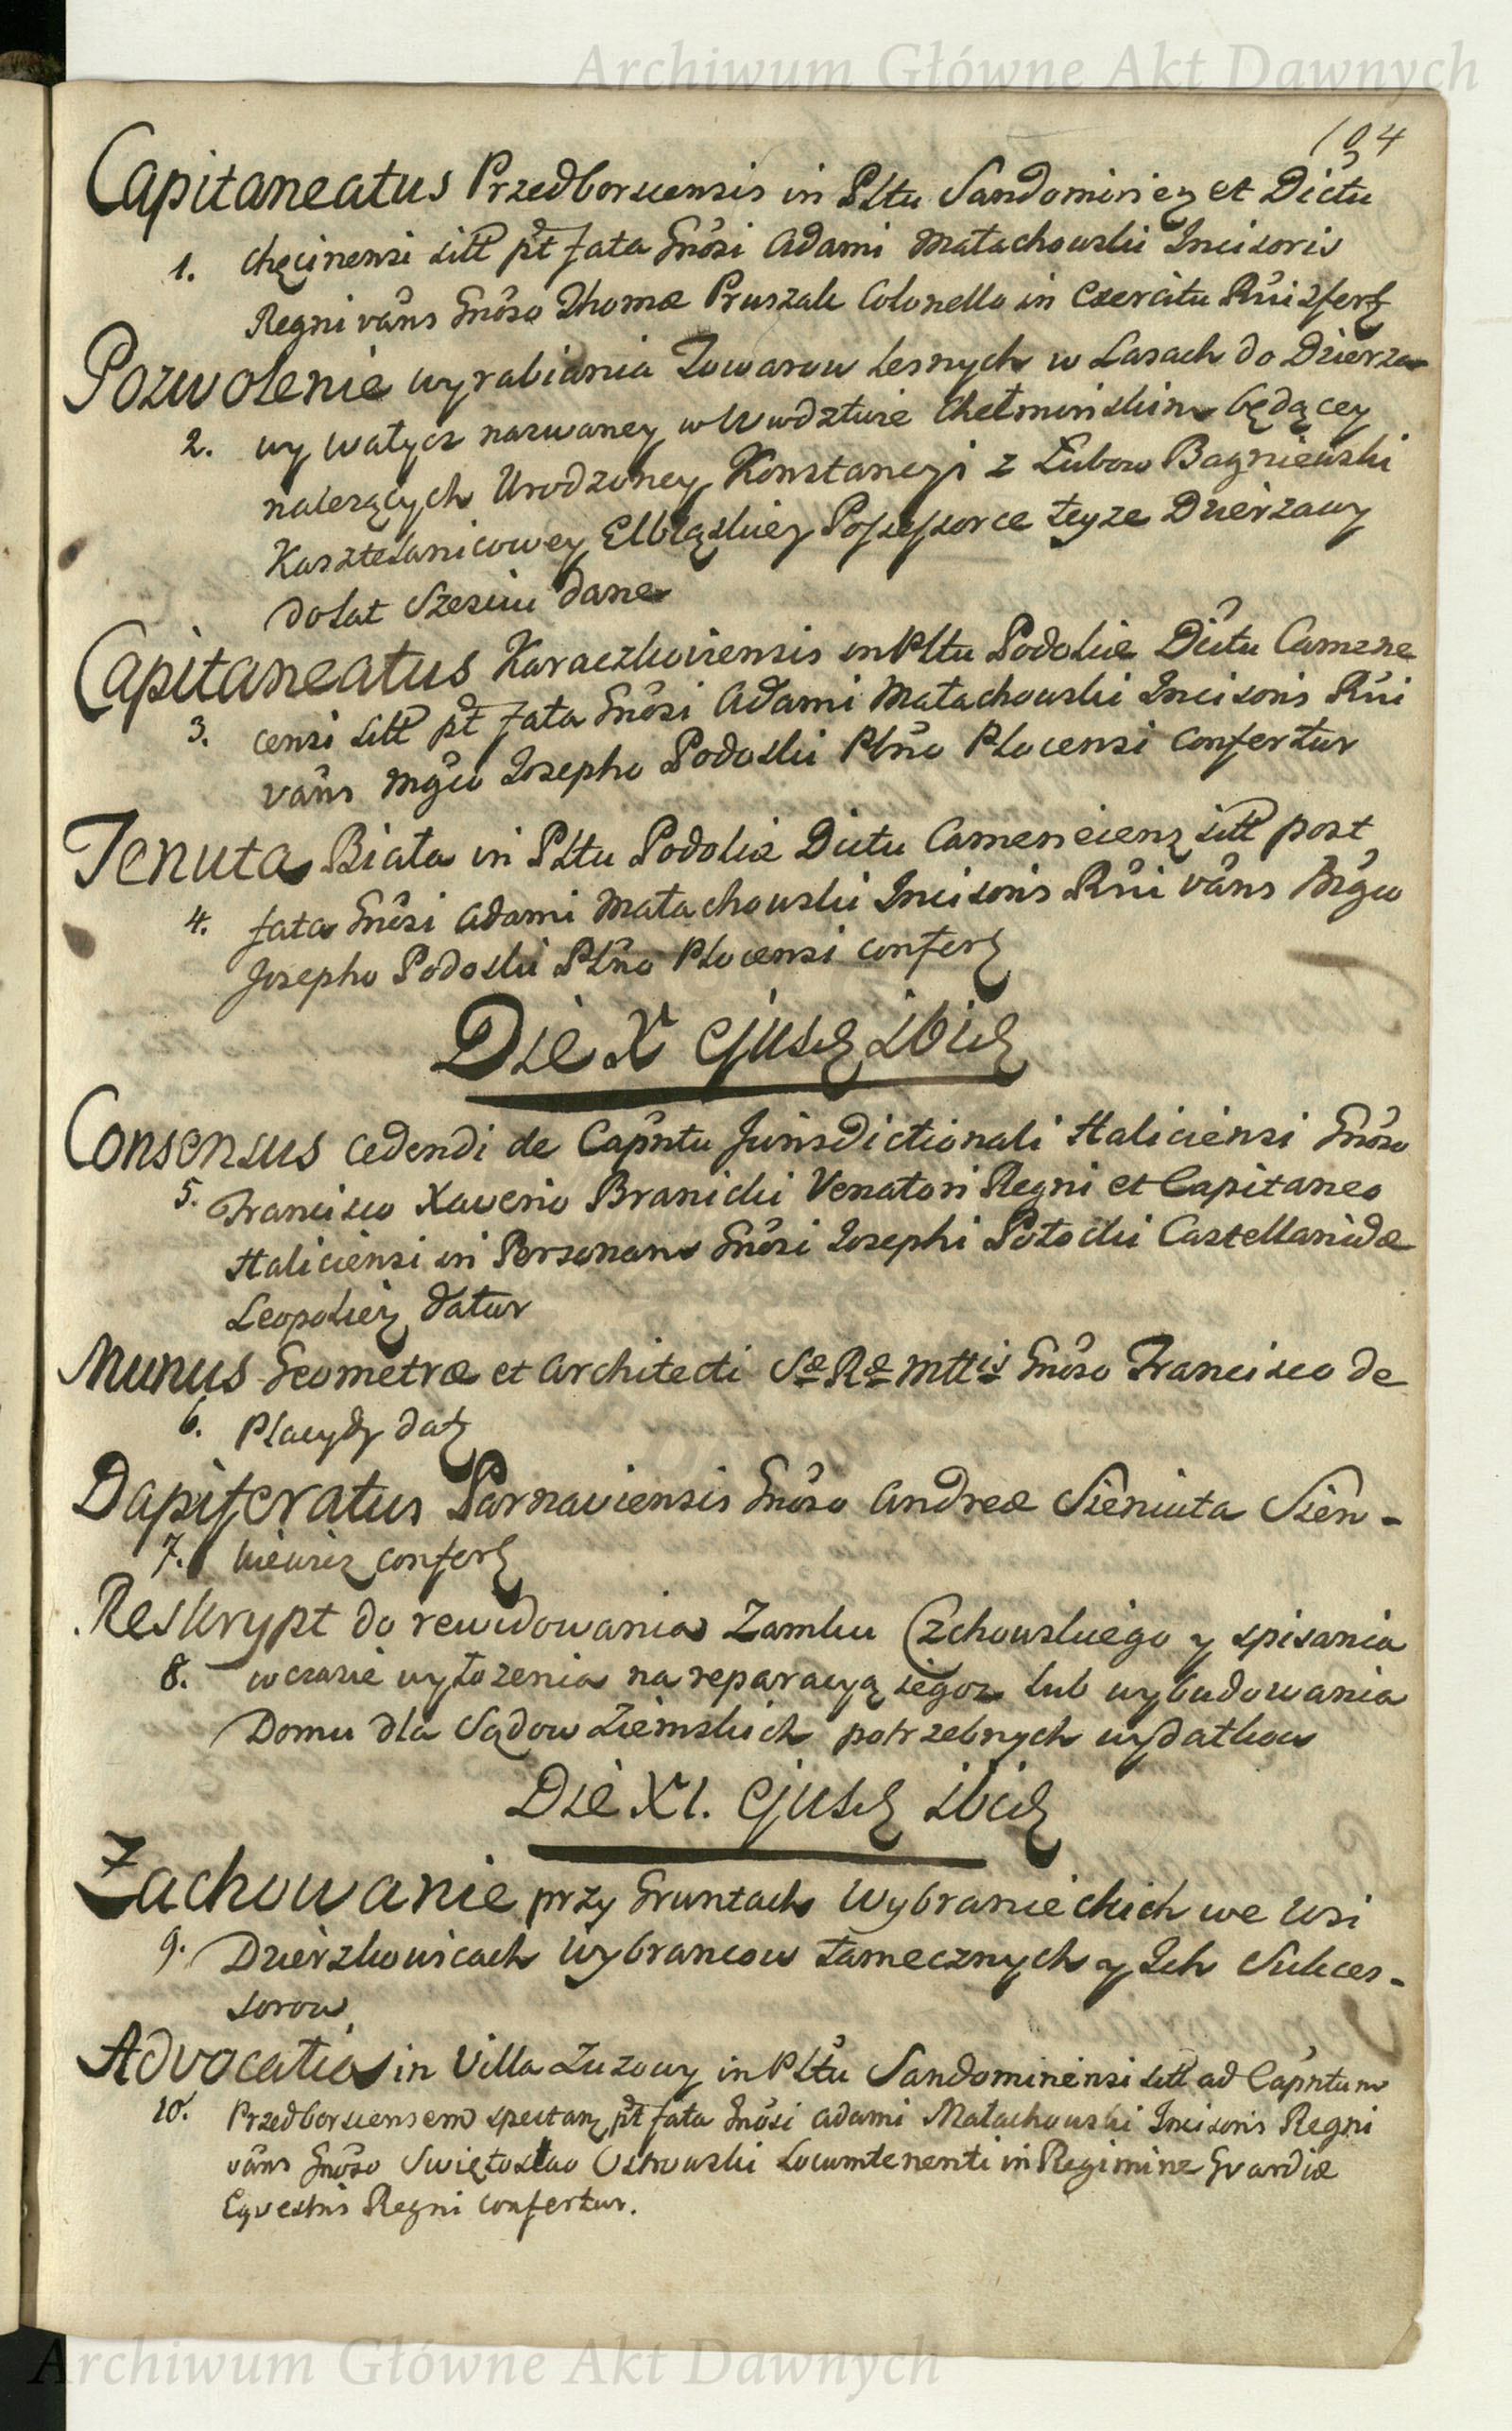 Archiwum Główne Akt Dawnych
104
Capitaneatus Przedborscensis in Pltu Sandomirien et Dictu
1. Chęcinensi sitt pt fata Gnosi Adami Małachowski Incisoris
Regni vans Gnoso Thomæ Pruszak Colonello in Exercitu Rni
Pozwolenie wyrabiania Towarow Lesnych w Lasach do Dzierza
2. wy Wałycz nazwaney w Wwdztwie Chełminskim będącey
nalezących Urodzoney Konstancyi z Łubow Bagniewski
Kasztelanicowey Elbląskiey Possessorce teyze Dzierzawy
do lat Szesciu dane
Capitaneatus Karaczkoviensis in Pltu Podoliæ Dictu Camene
3. censi sitt pt fata Gnosi Adami Małachowski Incisoris Rni
vans Mgco Josepho Podoski Pltno Plocensi confertur
Tenuta Biała in Pltu Podoliæ Dictu Camenecien sitt post
4. fata Gnosi Adami Małachowski Incisoris Rni vans Mgco
Josepho Podoski Pltno Plocensi confer
Die X ejusd ibid
Consensus cedendi de Capntu Jurisdictionali Haliciensi Gnoso
5. Francisco Xaverio Branicki Venatori Regni et Capitaneo
Haliciensi in Personam Gnosi Josephi Potocki Castellanidæ
Leopolien datur
Munus Geometræ et Architecti Sæ Ræ Mttis Gnoso Francisco de
6. Placydy dat
Dapiferatus Parnaviensis Gnoso Andreæ Sieniuta Sien-
7. kiewicz confer
Reskrypt do rewidowania Zamku Czchowskiego y spisania
8. wczasie wyłozenia na reparacyą iegoz lub wybudowania
Domu dla Sądow Ziemskich potrzebnych wydatkow
Die XI. ejusd ibid
Zachowanie przy Gruntach Wybranieckich we Wsi
9. Dzierzkowicach Wybrancow tamecznych y Ich Sukces-
sorow
Advocatia in Villa Zuzowy in Pltu Sandomiriensi sitt ad Capntum
10. Przedborscensem spectan pt fata Gnosi Adami Małachowski Incisoris Regni
vans Gnoso Swiętosłao Ostrowski Locumtenenti in Regimine Gvardiæ
Eqvestris Regni confertur.
Archiwum Główne Akt Dawnych